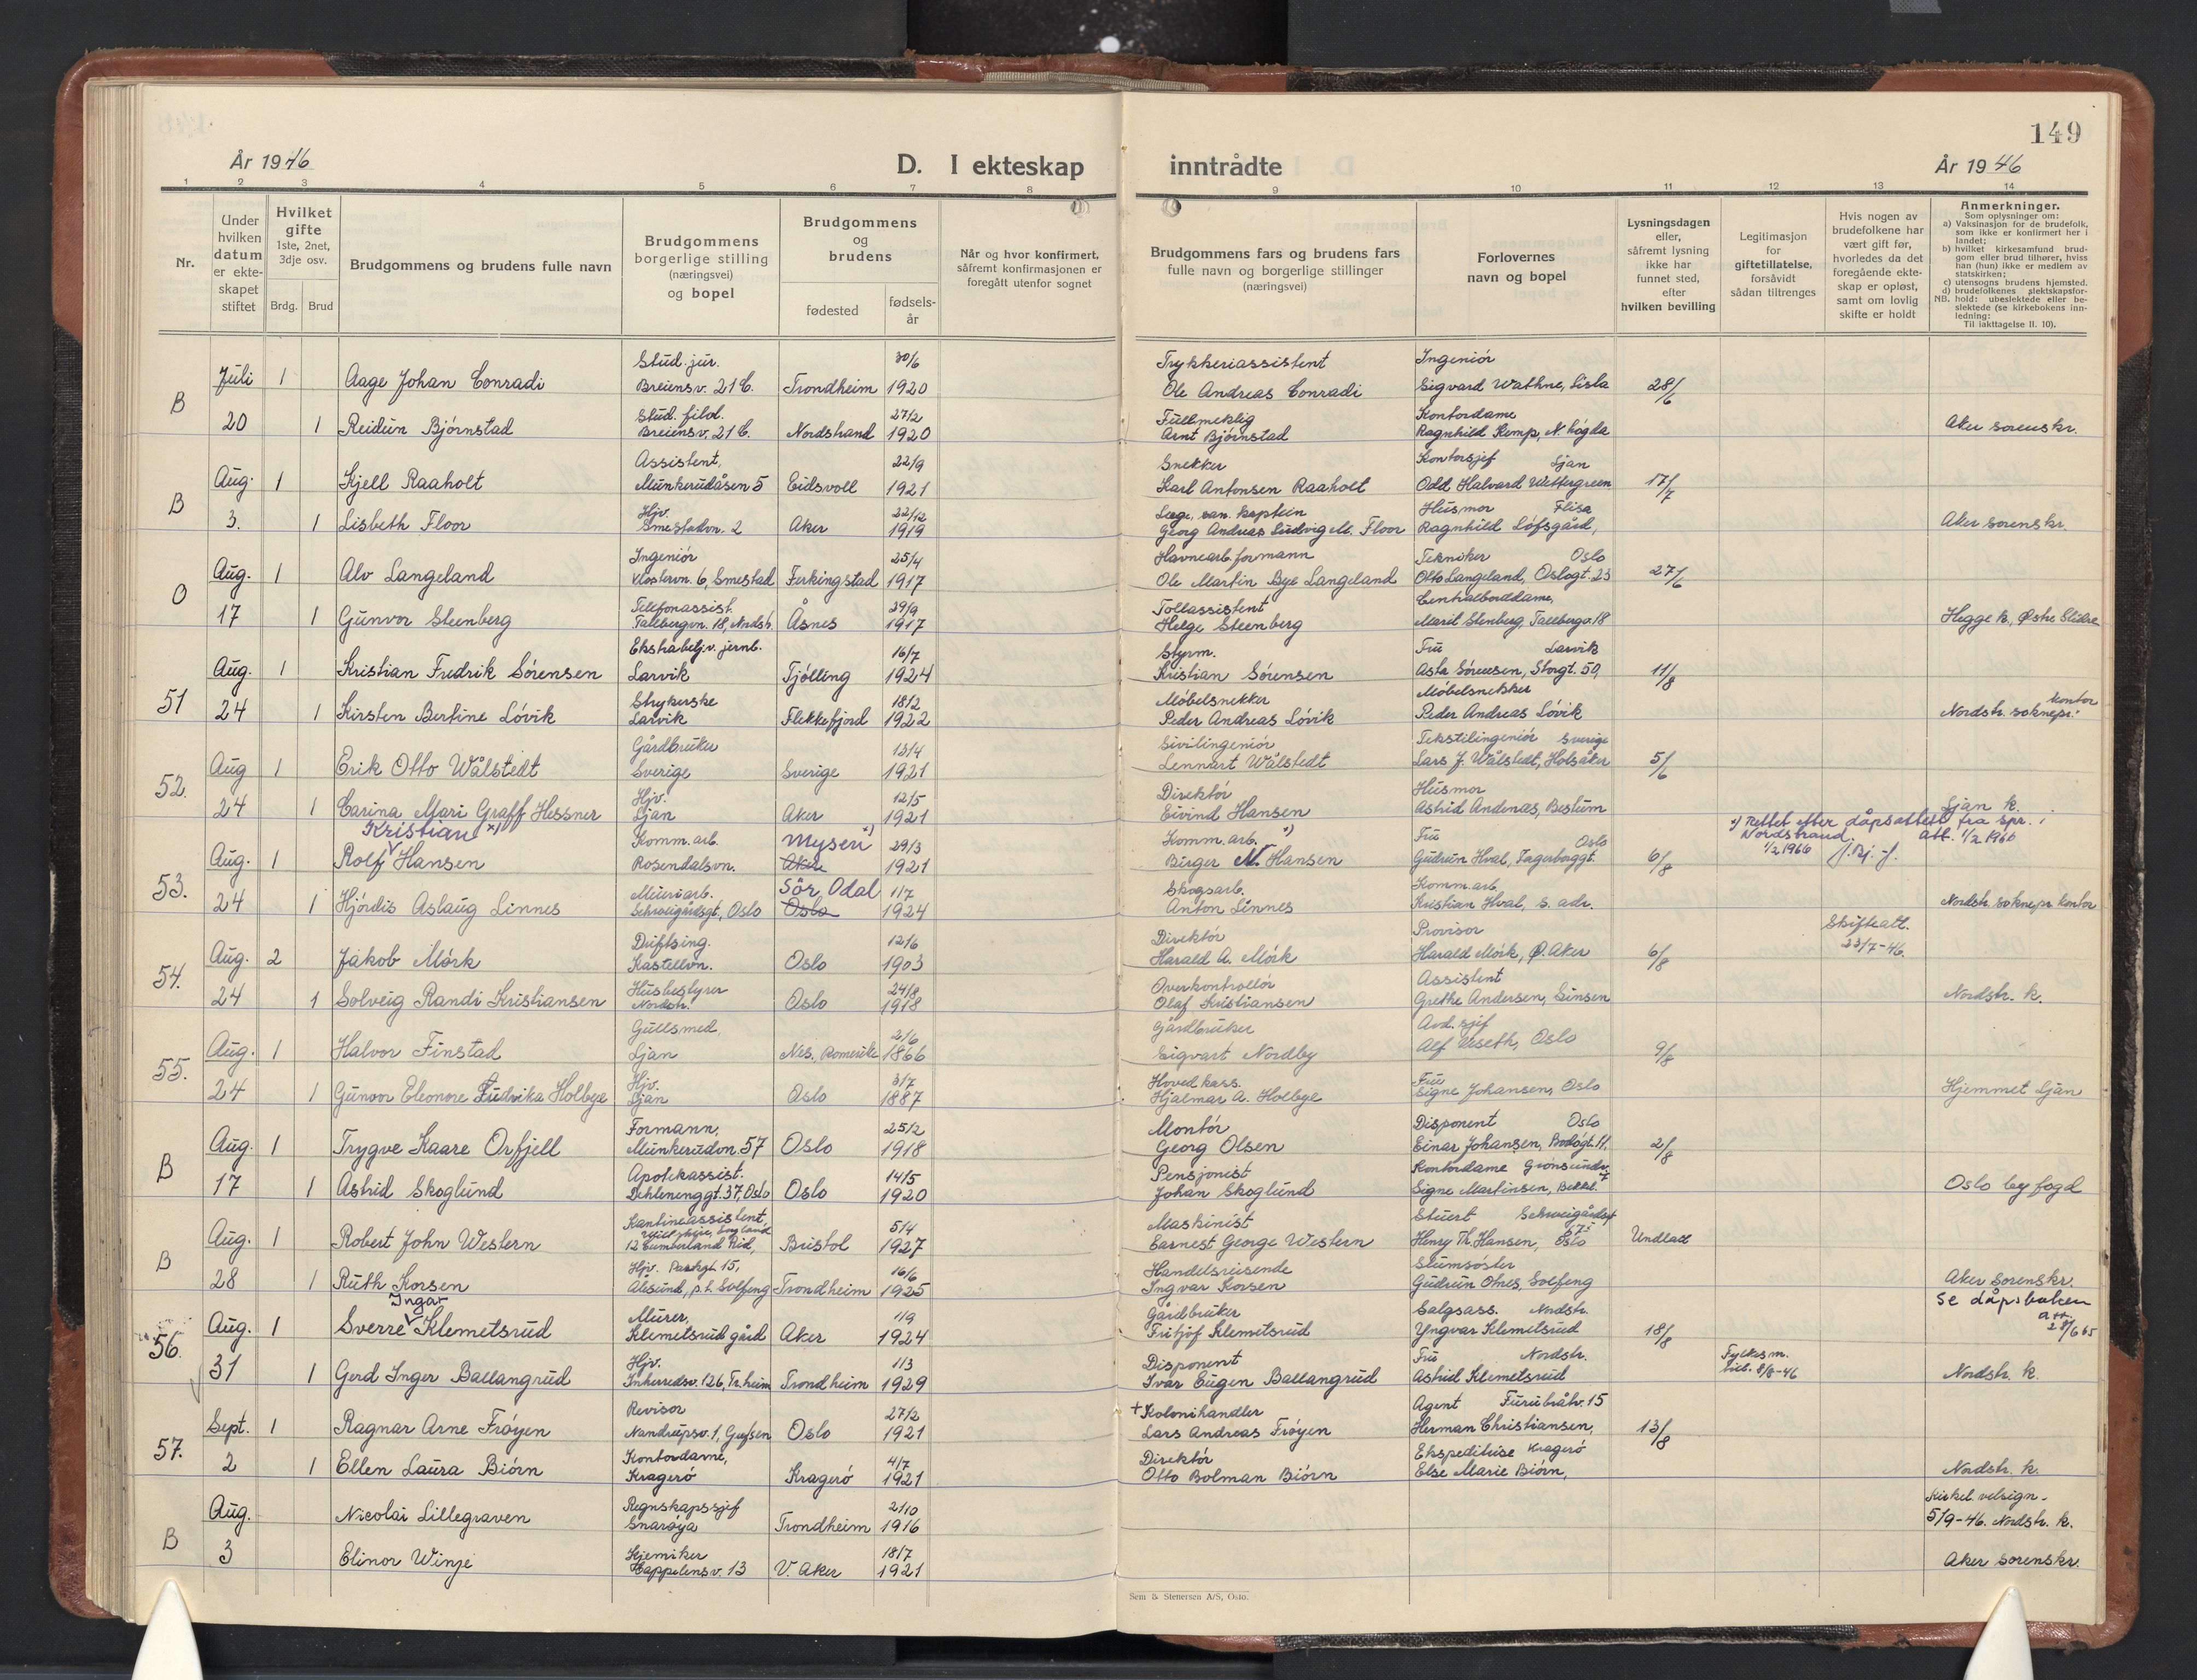 149
År 1946
D. I ekteskap inntrådte
År 1946
1 2 3 4 5 6 7 8 9 10 11 12 13 14
Nr.
Under hvilken datum er ekte-skapet stiftet
Hvilket gifte 1ste, 2net, 3dje osv.
Brdg. Brud
Brudgommens og brudens fulle navn
Brudgommens borgerlige stilling (næringsvei) og bopel
Brudgommens og brudens
fødested
fødsels-år
Når og hvor konfirmert, såfremt konfirmasjonen er foregått utenfor sognet
Brudgommens fars og brudens fars fulle navn og borgerlige stillinger (næringsvei)
Forlovernes navn og bopel
Lysningsdagen eller, såfremt lysning ikke har funnet sted, efter hvilken bevilling
Legitimasjon for giftetillatelse, forsåvidt sådan tiltrenges
Hvis nogen av brudefolkene har vært gift før, hvorledes da det foregående ekte-skap er opløst, samt om lovlig skifte er holdt
Anmerkninger.
Som oplysninger om:
a) Vaksinasjon for de brudefolk, som ikke er konfirmert her i landet;
b) hvilket kirkesamfund brud-gom eller brud tilhører, hviss han (hun) ikke er medlem av statskirken;
c) utensogns brudens hjemsted.
d) brudefolkenes slektskapsfor-
NB. hold: ubeslektede eller be-slektede (se kirkebokens inn-ledning:
Til iakttagelse II. 10).
Stud. jur. 30/6 Trykkeriassistent Ingeniør
B Juli 1 Aage Johan Conradi Breiensv. 21 C. Trondheim 1920 Ole Andreas Conradi Sigvard Wathne, 28/6
Stud. filol. 27/2 Fullmektig Kontordame
20 1 Reidun Bjørnstad Breiensv. 21 C. Nordstrand 1920 Arnt Bjørnstad Ragnhild Kemp, Aker sorenskr.
Assistent, 22/9 Snekker Kontorsjef Ljan
B Aug. 1 Kjell Raaholt Munkerudåsen 5 Eidsvoll 1921 Karl Antonsen Raaholt Odd Halvard Wettergreen 17/7
Hjv. 22/12 Læge, san. kaptein Husmor Flisa
3. 1 Lisbeth Floor Smestadvn. 2 Aker 1919 Georg Andreas Ludvig M. Floor Ragnhild Løfsgård, Aker sorenskr.
Ingeniør 25/4 Havnearb. formann Tekniker Oslo
O Aug. 1 Alv Langeland Klostervn. 6, Smestad Ferkingstad 1917 Ole Martin Bye Langeland Otto Langeland, Oslogt. 23 27/6
Telefonassist. 29/9 Tollassistent Centralborddame,
17 1 Gunvor Steenberg Tallbergvn. 18, Nordstr. Åsnes 1917 Helge Steenberg Marit Stenberg, Tallbergv. 18 Hegge k., Østre Slidre
Ekstrabetj. v. jernb. 16/7 Styrm. Fru Larvik
51 Aug. 1 Kristian Fredrik Sørensen Larvik Tjølling 1924 Kristian Sørensen Asta Sørensen, Storgt. 50, 11/8
Strykerske 18/2 Møbelsnekker Møbelsnekker kontor
24 1 Kirsten Bertine Løvik Larvik Flekkefjord 1922 Peder Andreas Løvik Peder Andreas Løvik Nordstr. soknepr.
Gårdbruker 13/4 Sivilingeniør Tekstilingeniør Sverige
52. Aug 1 Erik Otto Wålstedt Sverige Sverige 1921 Lennart Wålstedt Lars J. Wålstedt, Holsåker 5/6
Hjv. 12/5 Direktør Husmor
24 1 Carina Mari Graff Hessner Ljan Aker 1921 Eivind Hansen Astrid Andenæs, Bestum Ljan k.
Kristian x) Komm. arb. Mysen x) 29/3 Komm. arb. x) Fru Oslo x) Rettet efter dåpsattest fra spr. i Nordstrand. att. 1/2 1966
53. Aug. 1 Rolf Hansen Rosendalsvn. Aker 1921 Birger M. Hansen Gudrun Hval, Fagerborggt. 6/8 1/2 1966 J. Bj. J.
Murerarb. Sör Odal 11/7 Skogsarb. Komm. arb.
24 1 Hjørdis Aslaug Linnes Schweigårdsgt, Oslo Oslo 1924 Anton Linnes Kristian Hval, s. adr. Nordstr. soknepr. kontor
Driftsing. 12/6 Direktør Provisor Skifteatt.
54. Aug. 2 Jakob Mørk Kastellvn. Oslo 1903 Harald A. Mørk Harald Mørk, Ø. Aker 6/8 23/7-46.
Husbestyrer 24/8 Overkontrollør Assistent
24 1 Solveig Randi Kristiansen Nordstr. Oslo 1918 Olaf Kristiansen Grethe Andersen, Sinsen Nordstr. k.
Gullsmed, 2/6 Gårdbruker Avd. sjef
55. Aug. 1 Halvor Finstad Ljan Nes, Romerike 1866 Sigvart Nordby Alf Ulseth, Oslo 9/8
Hjv. 3/7 Hovedkass. Fru
24 1 Gunvor Eleonore Ludvika Holbye Ljan Oslo 1887 Hjalmar A. Holbye Signe Johansen, Oslo Hjemmet Ljan
Formann, 25/2 Montør Disponent Oslo
B Aug. 1 Trygve Kaare Orfjell Munkerudvn. 57 Oslo 1918 Georg Olsen Einar Johansen, 2/8
Apotekassist. 14/5 Pensjonist Kontordame
17 1 Astrid Skoglund Dehlenenggt. 37, Oslo Oslo 1920 Johan Skoglund Signe Martinsen, Bekkl. Oslo byfogd
Kantineassistent, 5/4 Maskinist Stuert Schweigårdsgt
B Aug. 1 Robert John Western 12 Cumberland Rd, Bristol 1927 Earnest George Western Henry Th. Hansen, Oslo Undlatt
Hjv. Parkgt. 15, 16/6 Handelsreisende Stumsøster
28 1 Ruth Korsen Ålesund, p.t. Solfeng Trondheim 1925 Ingvar Korsen Gudrun Olnes, Solfeng Aker sorenskr.
Ingar Murer, 11/9 Gårdbruker Salgsass. Nordstr. Se dåpsboken att. 28/6 65
56. Aug. 1 Sverre Klemetsrud Klemetsrud gård Aker 1924 Fritjof Klemetsrud Yngvar Klemetsrud 18/8
Hjv. 11/3 Disponent Fru Nordstr. Fylkesm.
31 1 Gerd Inger Ballangrud Inherredsv. 126, Tr.heim Trondheim 1929 Ivar Eugen Ballangrud Astrid Klemetsrud bill. 8/8-46 Nordstr. k.
Revisor 27/2 + Kolonihandler Agent Furubråtv. 15
57. Sept. 1 Ragnar Arne Frøyen Nandrupsv. 1, Grefsen Oslo 1921 Lars Andreas Frøyen Herman Christiansen, 13/8
Kontordame, 4/7 Direktør Ekspeditrise Kragerø
2 1 Ellen Laura Biørn Kragerø Kragerø 1921 Otto Bolman Biørn Else Marie Biørn, Nordstr. k.
Regnskapssjef 21/10 Kirkel. velsign.
B Aug. Nicolai Lillegraven Snarøya Trondheim 1916 5/9-46. Nordstr. k.
Kjemiker 18/7
3 Elinor Winje Cappelensv. 13 V. Aker 1921 Aker sorenskr.
Sem & Stenersen A/S, Oslo.